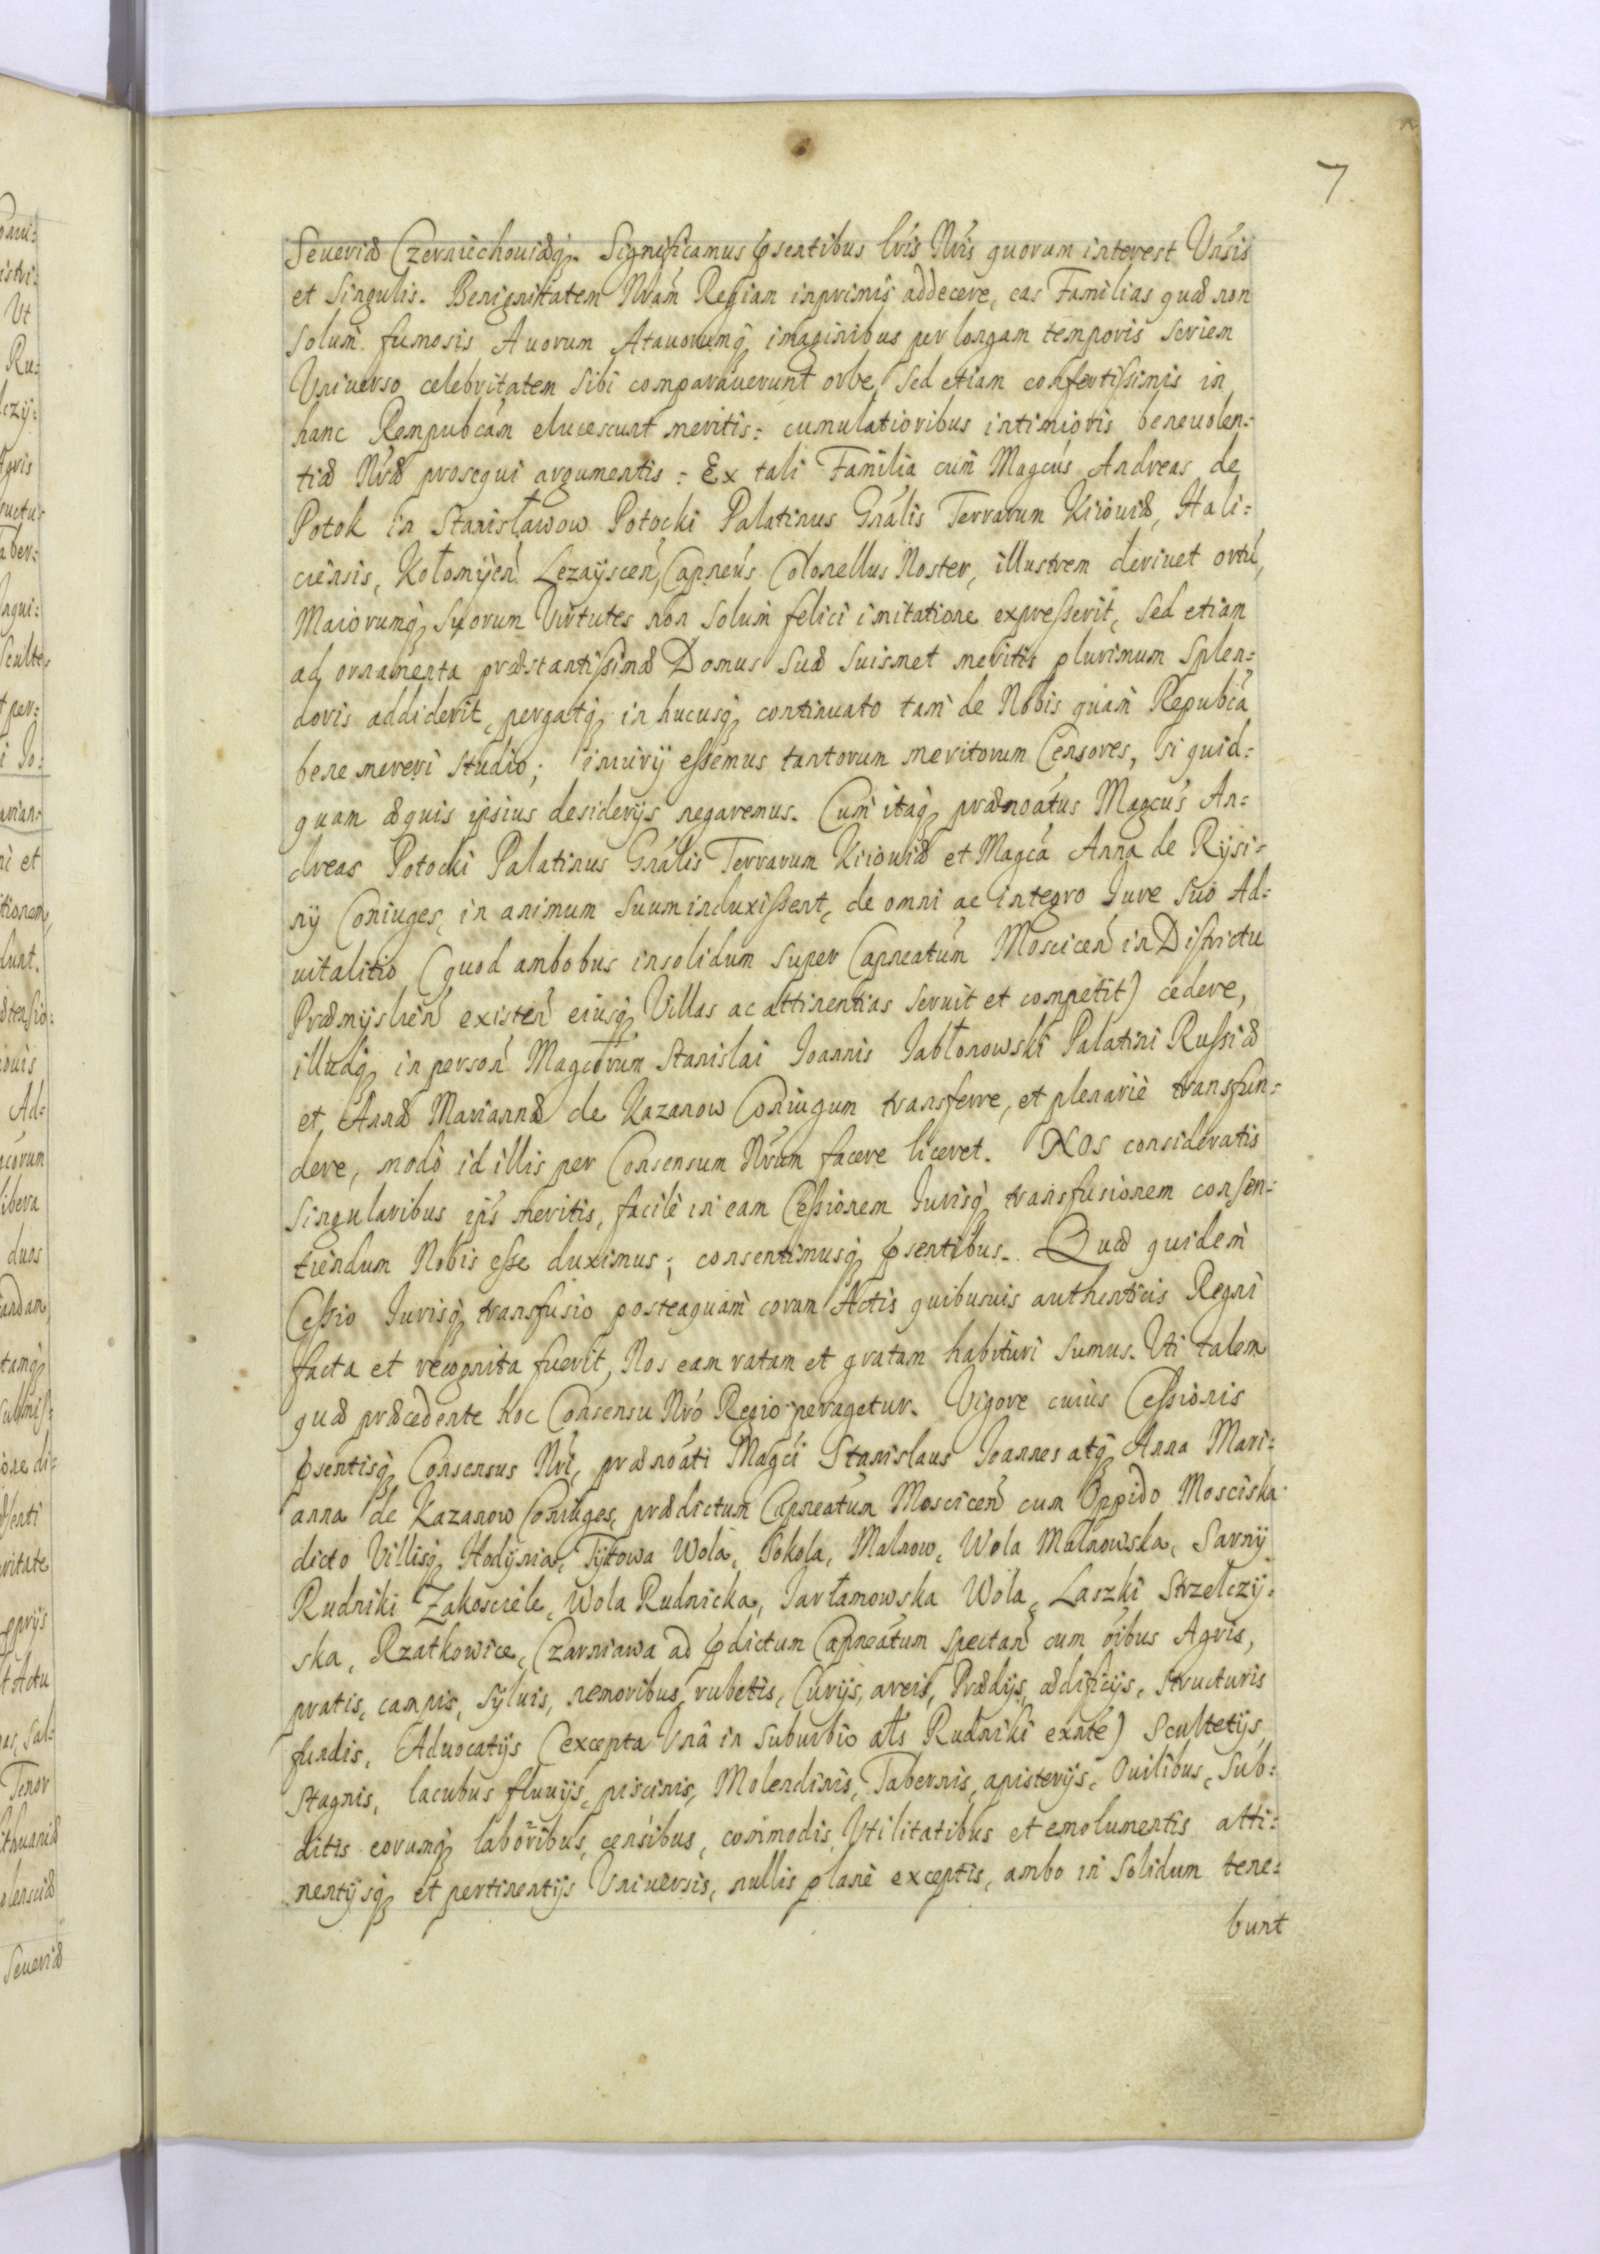 7
Seueriæ Czerniechouiæq. Significamus psentibus lris Nris quorum interest Vnsis
et Singulis. Benignitatem Nram Regiam inprimis addecere, eas Familias quæ non
solum fumosis Auorum Atauorumq imaginibus per longam temporis seriem
Vniuerso celebritatem sibi comparauerunt orbe, sed etiam confertissimis in
hanc Rempubcam elucescunt meritis: cumulatioribus intimioris beneuolen:
tiæ Nræ prosequi argumentis: Ex tali Familia cum Magcus Andreas de
Potok in Stanisławow Potocki Palatinus Gnalis Terrarum Kiiouiæ, Hali:
ciensis, Kołomyien Lezayscen, Capneus Colonellus Noster, illustrem deriuet ortu,
Maiorumq Suorum Virtutes non solum felici imitatione expresserit, sed etiam
ad ornamenta præstantissimæ Domus Suæ Suismet meritis plurimum Splen:
doris addiderit, pergatq in hucusq continuato tam de Nobis quam Repubca
bene mereri studio; iniurij essemus tantorum meritorum Censores, si quid:
quam æquis ipsius desiderijs negaremus. Cum itaq prænoatus Magcus An:
dreas Potocki Palatinus Gnalis Terrarum Kiiouiæ et Magca Anna de Rysi:
ny Coniuges, in animum Suum induxissent, de omni ac integro Iure Suo Ad:
uitalitio (quod ambobus insolidum super Capneatum Moscicen in Districtu
Præmyslien existen eiusq Villas ac attinentias seruit et competit) cedere,
illudq in person Magcorum Stanislai Ioannis Iabłonowski Palatini Russiæ
et Annæ Mariannæ de Kazanow Coniugum transferre, et plenariè transfun:
dere, modo id illis per Consensum Nrum facere liceret. NOS consideratis
singularibus ips meritis, facilè in eam Cessionem Iurisq transfusionem consen:
tiendum Nobis esse duximus; consentimusq psentibus. Quæ quidem
Cessio Iurisq transfusio posteaquam coram Actis quibusuis authenticis Regni
facta et recognita fuerit, Nos eam ratam et gratam habituri sumus. Vti talem
quæ præcedente hoc Consensu Nro Regio peragetur. Vigore cuius Cessionis
psentisq Consensus Nri, prænoati Magci Stanislaus Ioannes atq Anna Mari:
anna de Kazanow Coniuges, prædictum Capneatum Moscicen cum Oppido Mosciska
dicto Villisq Hodynia, Tyłowa Wola, Sokola, Malnow, Wola Malnowska, Sarny
Rudniki Zakosciele, Wola Rudnicka, Iarłamowska Wola, Laszki Strzelczy:
ska, Rzatkowice, Czarniawa ad pdictum Capneatum spectan cum oibus Agris,
pratis, campis, syluis, nemoribus, rubetis, Curijs, areis, Prædijs, ædificijs, structuris
fundis, Aduocatijs (excepta Vna in suburbio als Rudniki exnte) Scultetijs,
stagnis, lacubus fluuijs, piscinis, Molendinis, Tabernis, apisterijs, Ouilibus, Sub:
ditis eorumq laboribus, censibus, commodis, Vtilitatibus et emolumentis atti:
nentijsq et pertinentijs Vniuersis, nullis planè exceptis, ambo in Solidum tene:
bunt